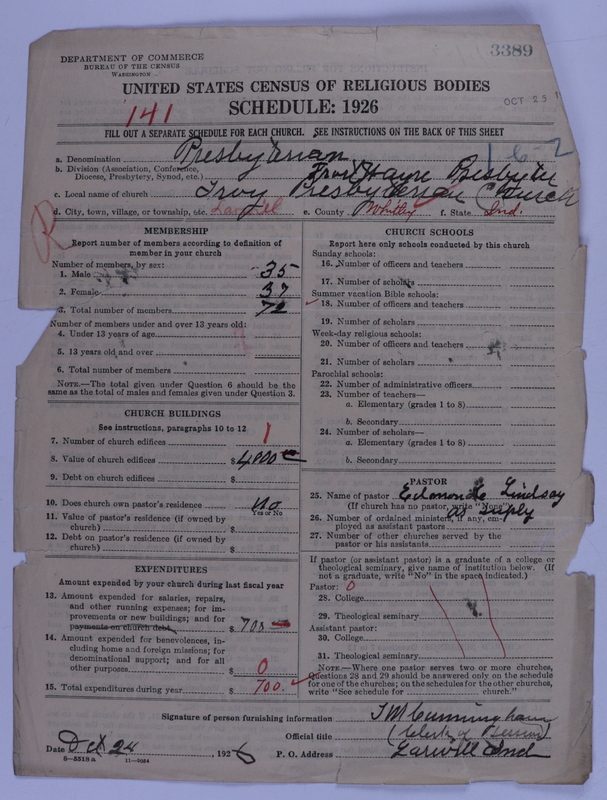 3389
DEPARTMENT OF COMMERCE
BUREAU OF THE CENSUS
WASHINGTON
UNITED STATES CENSUS OF RELIGIOUS BODIES
SCHEDULE: 1926
OCT 25
141
FILL OUT A SEPARATE SCHEDULE FOR EACH CHURCH. SEE INSTRUCTIONS ON THE BACK OF THIS SHEET
a. Denomination Presbyterian
b. Division (Association, Conference, Diocese, Presbytery, Synod, etc.) Fort Wayne Presbytery
c. Local name of church Troy Presbyterian Church
d. City, town, village, or township, etc. Larwill e. County Whitley f. State Ind.
R
MEMBERSHIP
Report number of members according to definition of
member in your church
Number of members, by sex:
1. Male 35
2. Female 37
3. Total number of members 72
Number of members under and over 13 years old:
4. Under 13 years of age
5. 13 years old and over
6. Total number of members
NOTE.—The total given under Question 6 should be the
same as the total of males and females given under Question 3.
CHURCH BUILDINGS
See instructions, paragraphs 10 to 12
7. Number of church edifices 1
8. Value of church edifices $4000
9. Debt on church edifices $
10. Does church own pastor's residence No
Yes or No
11. Value of pastor's residence (if owned by
church) $
12. Debt on pastor's residence (if owned by
church) $
EXPENDITURES
Amount expended by your church during last fiscal year
13. Amount expended for salaries, repairs,
and other running expenses; for im-
provements or new buildings; and for
payments on church debt $ 700
14. Amount expended for benevolences, in-
cluding home and foreign missions; for
denominational support; and for all
other purposes $ 0
15. Total expenditures during year $ 700.
CHURCH SCHOOLS
Report here only schools conducted by this church
Sunday schools:
16. Number of officers and teachers
17. Number of scholars
Summer vacation Bible schools:
18. Number of officers and teachers
19. Number of scholars
Week-day religious schools:
20. Number of officers and teachers
21. Number of scholars
Parochial schools:
22. Number of administrative officers
23. Number of teachers—
a. Elementary (grades 1 to 8)
b. Secondary
24. Number of scholars—
a. Elementary (grades 1 to 8)
b. Secondary
PASTOR
25. Name of pastor Edmond Lindsay
(If church has no pastor, write "None") as suply
26. Number of ordained ministers, if any, em-
ployed as assistant pastors
27. Number of other churches served by the
pastor or his assistants
If pastor (or assistant pastor) is a graduate of a college or
theological seminary, give name of institution below. (If
not a graduate, write "No" in the space indicated.)
Pastor: 0
28. College
29. Theological seminary
Assistant pastor:
30. College
31. Theological seminary
NOTE.—Where one pastor serves two or more churches,
Questions 28 and 29 should be answered only on the schedule
for one of the churches; on the schedules for the other churches,
write "See schedule for church."
Signature of person furnishing information T M Cunningham
Official title (Clerk of Session)
Date Oct 24 1926 P. O. Address Larwill Ind
8-5518a 11-9084